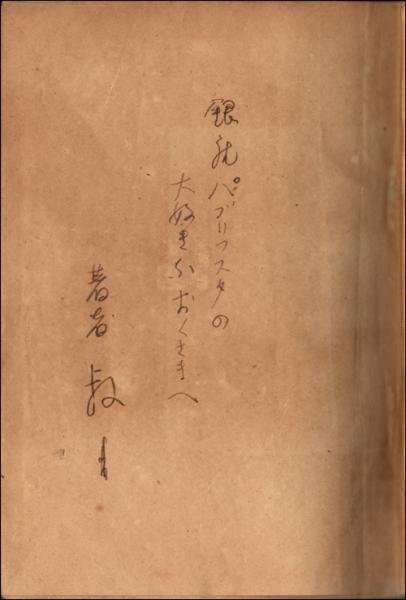 銀パブリスタの
大好きなおくさまへ
著者